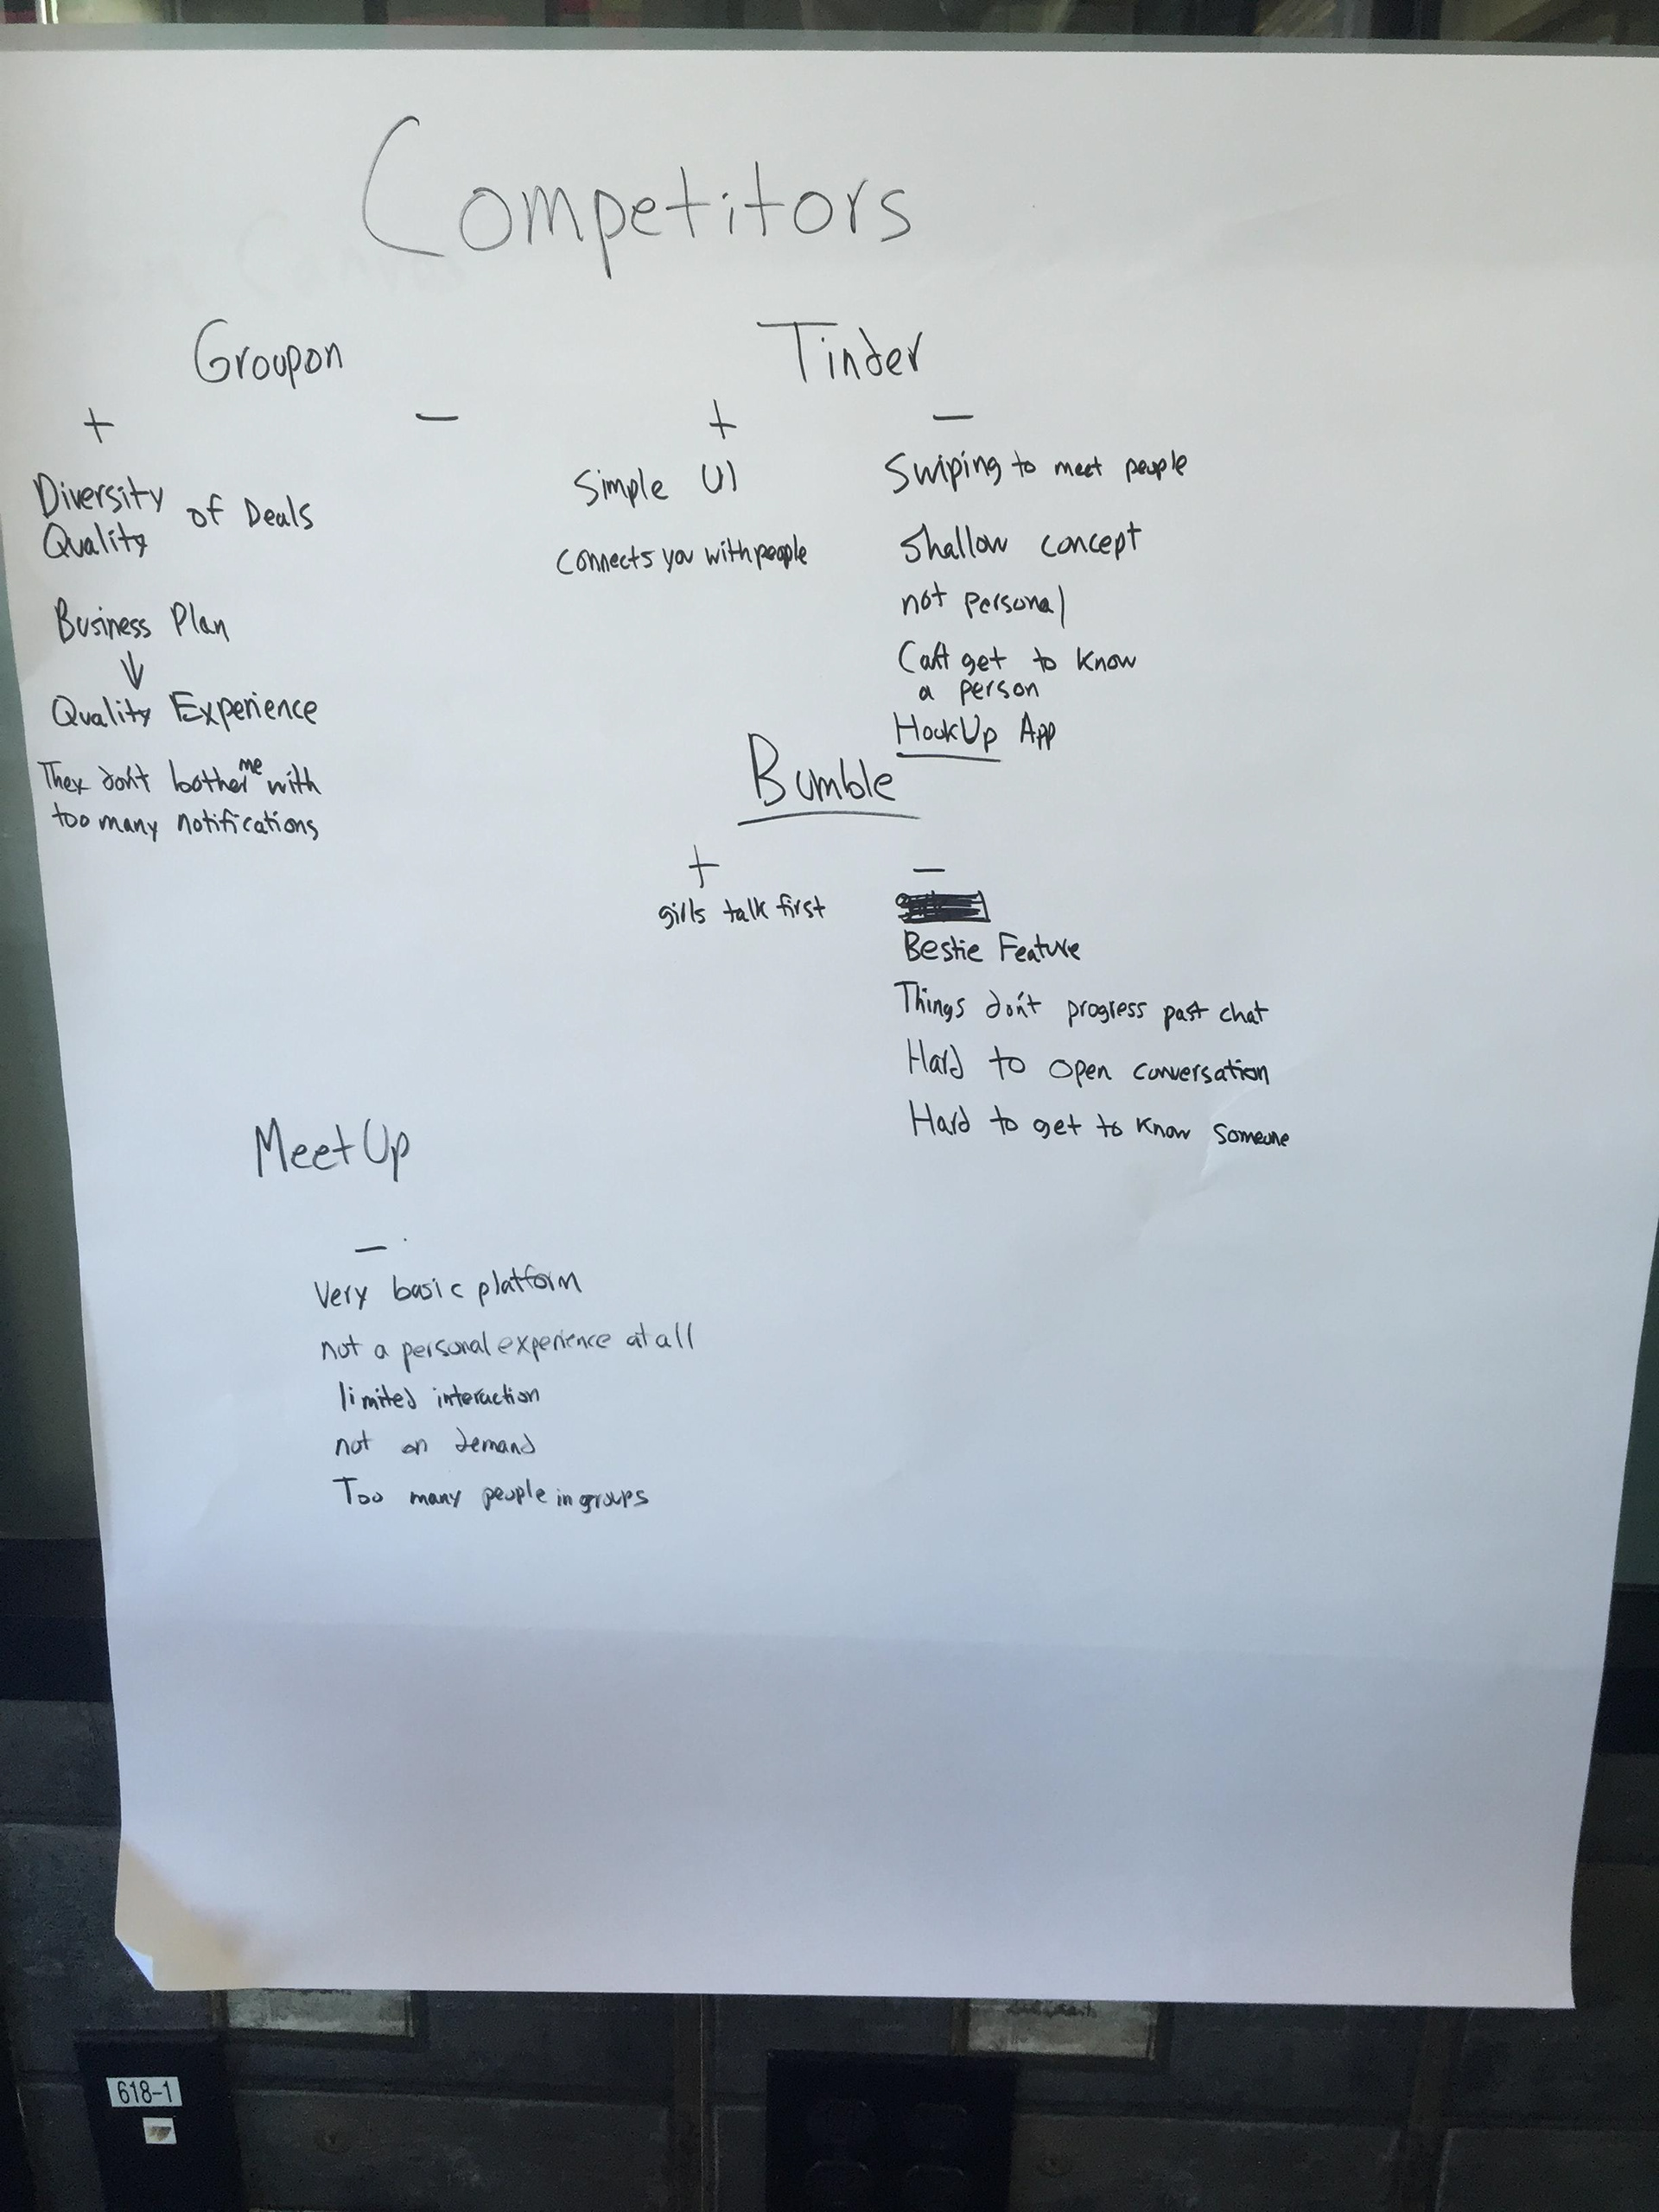 Competitors
Groupon
+ −
Diversity
Quality of Deals
Business Plan
↓
Quality Experience
They don't bother me with
too many notifications
Tinder
+ −
Simple UI
Connects you with people
Swiping to meet people
Shallow concept
not personal
Can't get to know
a person
HookUp App
Bumble
+ −
girls talk first
Bestie Feature
Things don't progress past chat
Hard to open conversation
Hard to get to know someone
MeetUp
−
Very basic platform
not a personal experience at all
limited interaction
not on demand
Too many people in groups
618-1